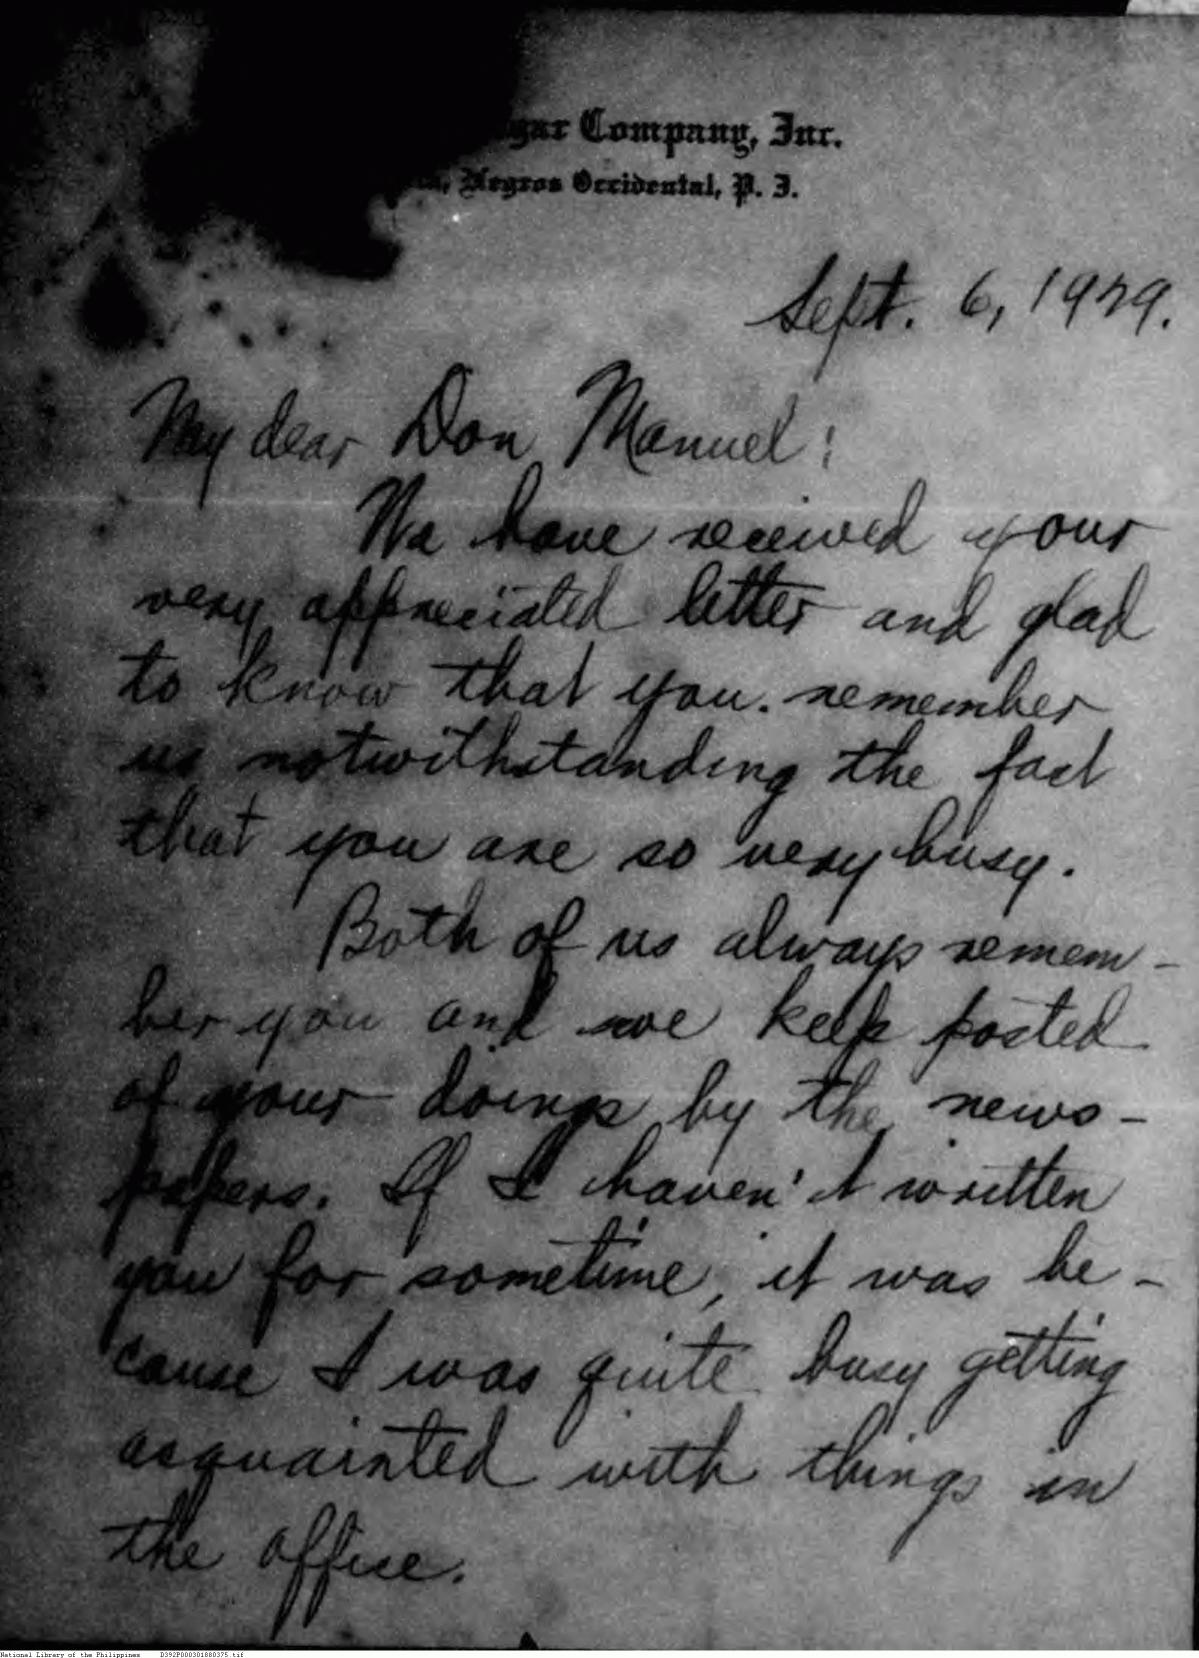 Company, Inc.
Negros Occidental, P. I.
Sept. 6, 1929.
My dear Don Manuel:
We have received your
very appreciated letter and glad
to know that you. remember
us notwithstanding the fact
that you are so very busy.
Both of us always remem-
ber you and we keep posted
of your doings by the news-
papers. If I haven't written
you for sometime, it was be-
cause I was quite busy getting
acquainted with things in
the office.
National Library of the Philippines D392P000301880375.tif